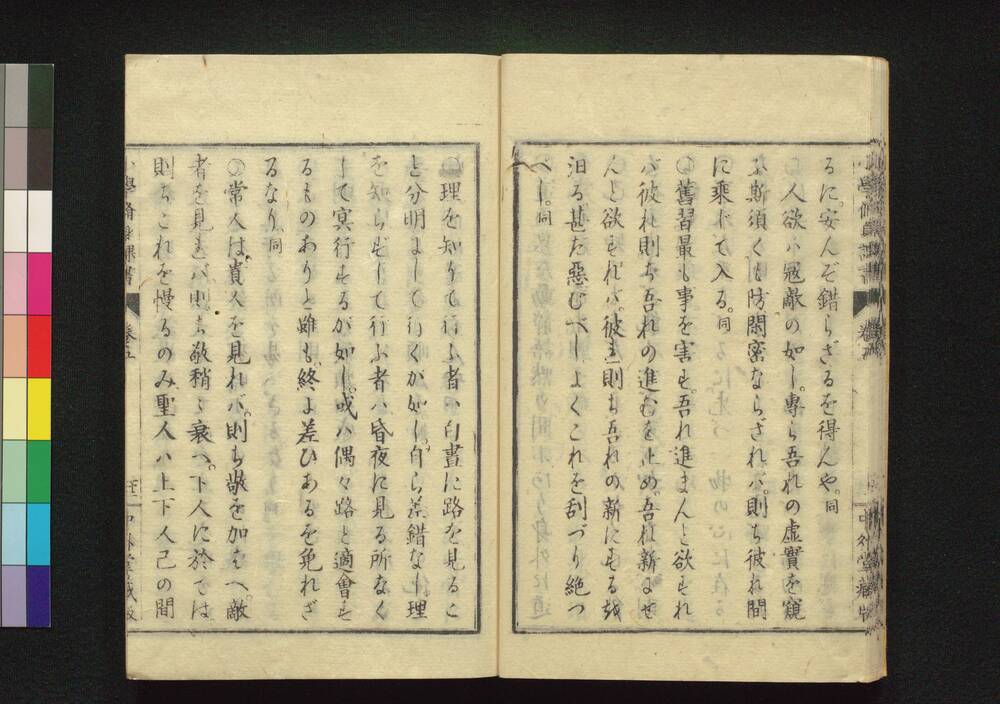 るに。安んぞ錯らざるを得んや。同
〇人欲ハ寇敵の如し。專ら吾れの虛實を窺
ふ。斯須くも防閑密ならざれハ。則ち彼れ間
に乘じて入る。同
〇舊習最も事を害す。吾れ進まんと欲すれ
バ彼れ則ち吾れの進むを止め。吾れ新にせ
んと欲すれバ。彼れ則ち吾れの新にするを
汨る。甚だ惡むべし。よくこれを刮づり絶つ
べし。同
〇理を知りて行ふ者ハ白晝に路を見るこ
と分明にして行くが如し。自ら差錯なし理
を知らずして行ふ者ハ昏夜に見る所なく
して冥行するが如し。或ハ偶々路と適會す
るものありと雖も。終に差ひあるを免れざ
るなり。同
〇常人は。貴人を見れバ。則ち敬を加へ。敵
者を見れバ則ち敬稍々衰へ。下人に於ては
則ちこれを慢るのみ聖人ハ上下人己の間
小學脩身課書
卷五
中外堂藏版